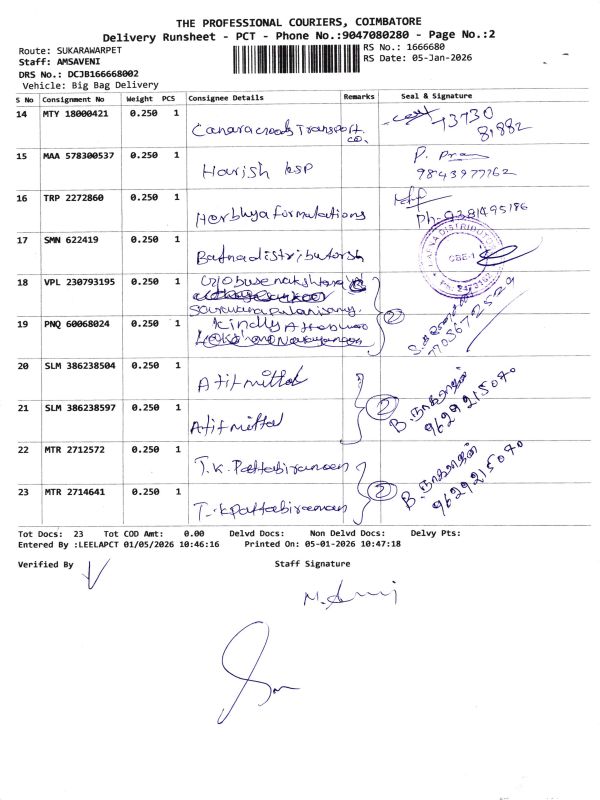 THE PROFESSIONAL COURIERS, COIMBATORE
Delivery Runsheet - PCT - Phone No.:9047080280 - Page No.:2
Route: SUKARAWARPET
RS No.: 1666680
Staff: AMSAVENI
RS Date: 05-Jan-2026
DRS No.: DCJB166668002
Vehicle: Big Bag Delivery
S No Consignment No Weight PCS Consignee Details Remarks Seal & Signature
14 MTY 18000421 0.250 1 Canara Transport. co. 73730
8,882
15 MAA 578300537 0.250 1 Harish ksp P.
9843977162
16 TRP 2272860 0.250 1 Herbhya formulations
Ph-9381495186
17 SMN 622419 0.250 1 Batna distributorsh
CBE-1
18 VPL 230793195 0.250 1
19 PNQ 60068024 0.250 1 Kindly
2
7705672529
20 SLM 386238504 0.250 1 Atit mittal
21 SLM 386238597 0.250 1 Atit mittal
2 B. நாகராஜன்
9629215070
22 MTR 2712572 0.250 1 T.K. Pattabiraman
23 MTR 2714641 0.250 1 T.K Pattabiraman
2 B. நாகராஜன்
9629215070
Tot Docs: 23 Tot COD Amt: 0.00 Delvd Docs: Non Delvd Docs: Delvy Pts:
Entered By :LEELAPCT 01/05/2026 10:46:16 Printed On: 05-01-2026 10:47:18
Verified By Staff Signature